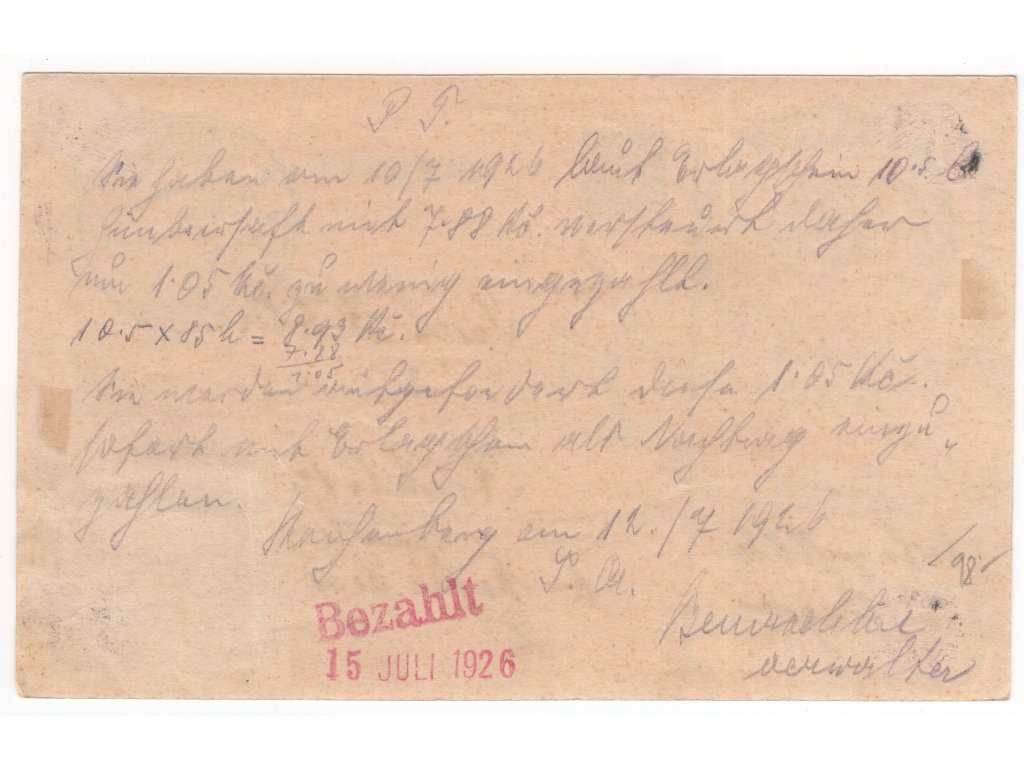 P. T.
Sie haben am 10/7 1926 laut Erlagschein 10.5 l
Himbeersaft mit 7.88 Kč. versteuert daher
um 1.05 Kč. zu wenig eingezahlt.
10.5 x 85 h = 8.93 Kč.
7.88
1.05
Sie werden aufgefordert diese 1.05 Kč.
sofort mit Erlagschein als Nachtrag einzu„
zahlen.
am 12./7 1926
/98/
verwalter
Bezahlt
15 JULI 1926